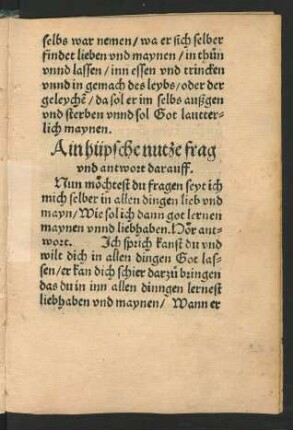 selbs war nemen / wa er sich selber
findet lieben vnd maynen / in thůn
vnnd lassen / inn essen vnd trincken
vnnd in gemach des leybs / oder der
geleychẽ / da sol er im selbs außgen
vnd sterben vnnd sol Got lautter-
lich maynen.
Ain hüpsche nutze frag
vnd antwort darauff.
Nun möchtest du fragen seyt ich
mich selber in allen dingen lieb vnd
mayn / Wie sol ich dann got lernen
maynen vnnd liebhaben. Hör ant-
wort. Ich sprich kanst du vnd
wilt dich in allen dingen Got las-
sen / er kan dich schier darzů bringen
das du in inn allen dinngen lernest
liebhaben vnd maynen / Wann er